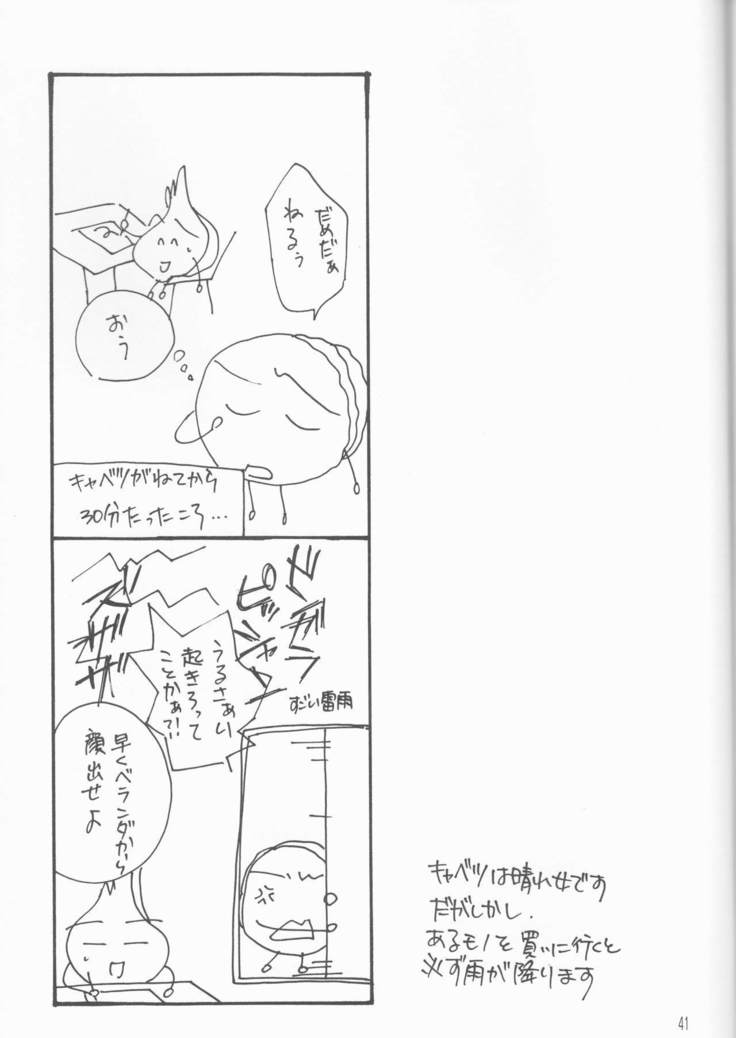 だめだぁ
ねるぅ
おう
キャベツがねてから
30分たったころ…
ゼガァ
ピッシャ
ズザザ
すごい雷雨
うるさぁい
起きろって
ことかぁ?!
早くベランダから
顔出せよ
キャベツは晴れ女です
だがしかし.
あるモノを買いに行くと
必ず雨が降ります
41